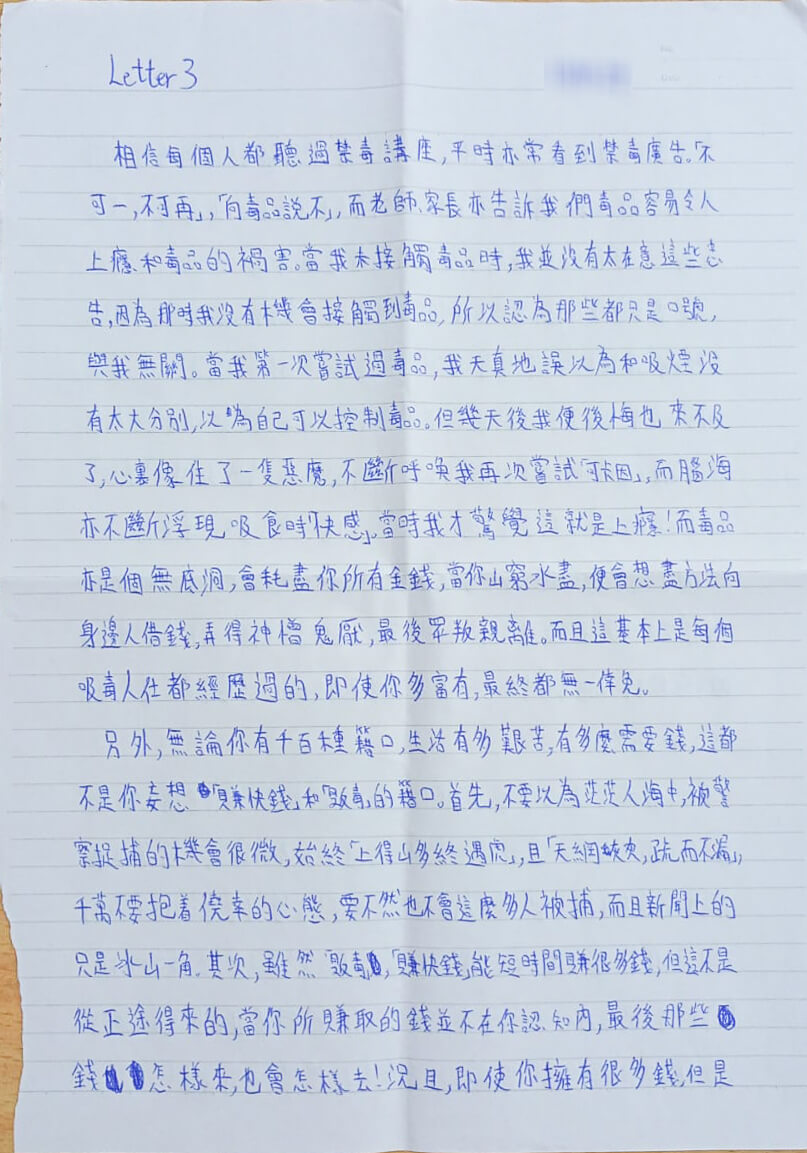 Letter 3
相信每個人都聽過禁毒講座,平時亦常看到禁毒廣告。「不
可一,不可再」,「向毒品說不」,而老師、家長亦告訴我們毒品容易令人
上癮和毒品的禍害。當我未接觸毒品時,我並沒有太在意這些忠
告,因為那時我沒有機會接觸到毒品,所以認為那些都只是口號,
與我無關。當我第一次嘗試過毒品,我天真地誤以為和吸煙沒
有太大分別,以為自己可以控制毒品。但幾天後我便後悔也來不及
了,心裏像住了一隻惡魔,不斷呼喚我再次嘗試「可卡因」,而腦海
亦不斷浮現吸食時「快感」,當時我才驚覺這就是上癮!而毒品
亦是個無底洞,會耗盡你所有金錢,當你山窮水盡,便會想盡方法向
身邊人借錢,弄得神憎鬼厭,最後眾叛親離。而且這基本上是每個
吸毒人仕都經歷過的,即使你多富有,最終都無一倖免。
另外,無論你有千百種籍口,生活有多艱苦,有多麼需要錢,這都
不是你妄想「賺快錢」和「販毒」的籍口。首先,不要以為茫茫人海中,被警
察捉捕的機會很微,始終「上得山多終遇虎」,且「天網恢恢,疏而不漏」,
千萬不要抱着僥幸的心態,要不然也不會這麼多人被捕,而且新聞上的
只是冰山一角。其次,雖然「販毒」,「賺快錢」能短時間賺很多錢,但這不是
從正途得來的,當你所賺取的錢並不在你認知內,最後那些
錢怎樣來,也會怎樣去!況且,即使你擁有很多錢,但是